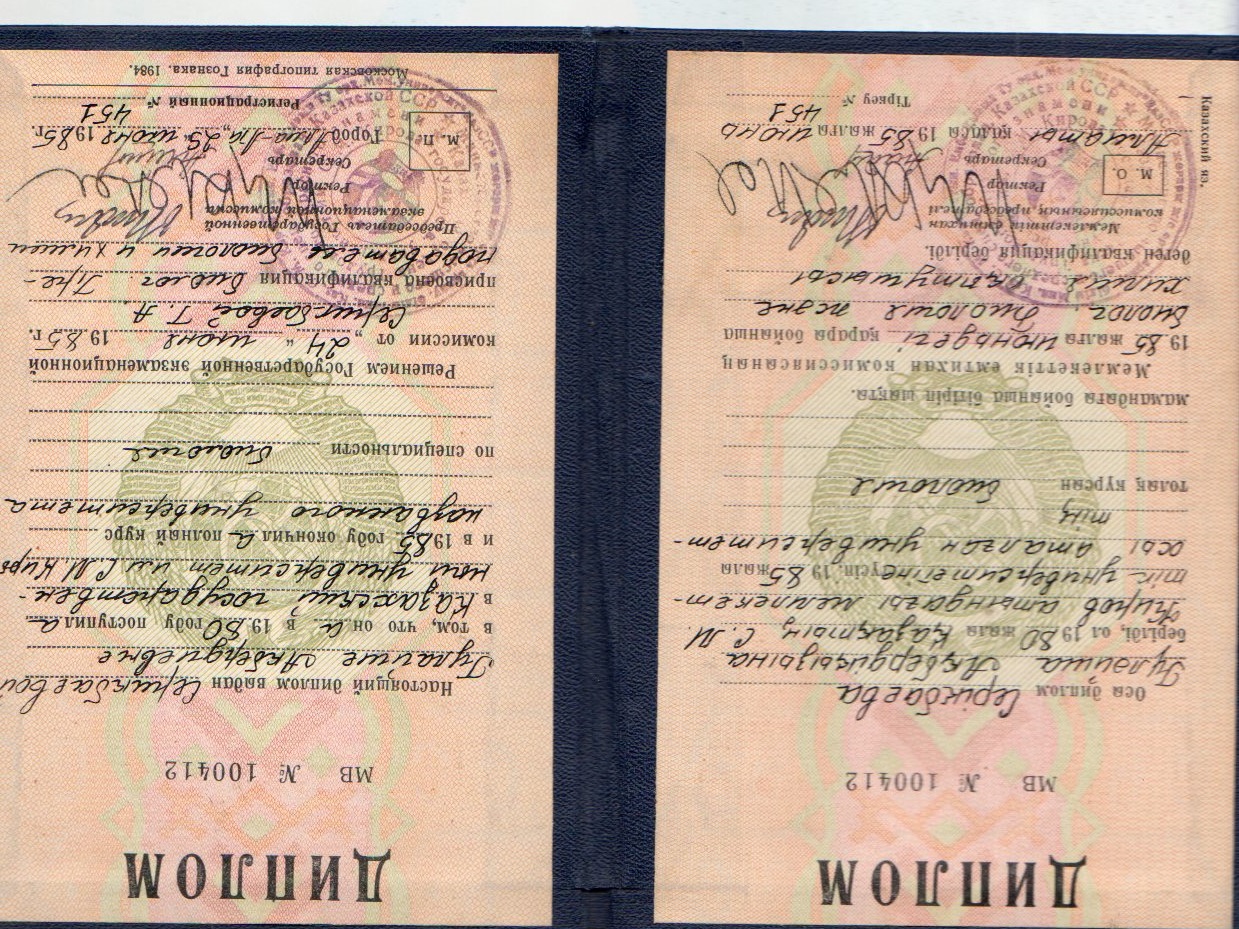 ДИПЛОМ
МВ № 100412
Осы диплом Серікбаева
Гулэйша Акбердикызына
берілді, ол 1980 жылы Қазақтың С. М.
Киров атындағы мемлекет-
тік университетіне түсіп, 1985 жылы
осы аталған университет-
тің
толық курсын биология
мамандығы бойынша бітіріп шықты.
Мемлекеттік емтихан комиссиясының
1985 жылғы июньдегі қарары бойынша
биолог. биология және
химия оқытушысы
деген квалификация берілді.
Мемлекеттік емтихан
комиссиясының председателі
Ректор
Секретарь
М. О.
Алматы қаласы 1985 жылғы июнь
Тіркеу № 451
Казахский яз.
ДИПЛОМ
МВ № 100412
Настоящий диплом выдан Серикбаевой
Гулайше Акбердиевне
в том, что он а в 1980 году поступила
в Казахский государствен-
ный университет им С. М. Кирова
и в 1985 году окончила полный курс
названного университета
по специальности биология
Решением Государственной экзаменационной
комиссии от „24“ июня 1985 г.
Серикбаевой Г. А.
присвоена квалификация биолог. Пре-
подаватель биологии и химии
Председатель Государственной
экзаменационной комиссии
Ректор
Секретарь
М. П.
Город Алма-Ата „25“ июня 1985 г.
Регистрационный № 451
Московская типография Гознака. 1984.